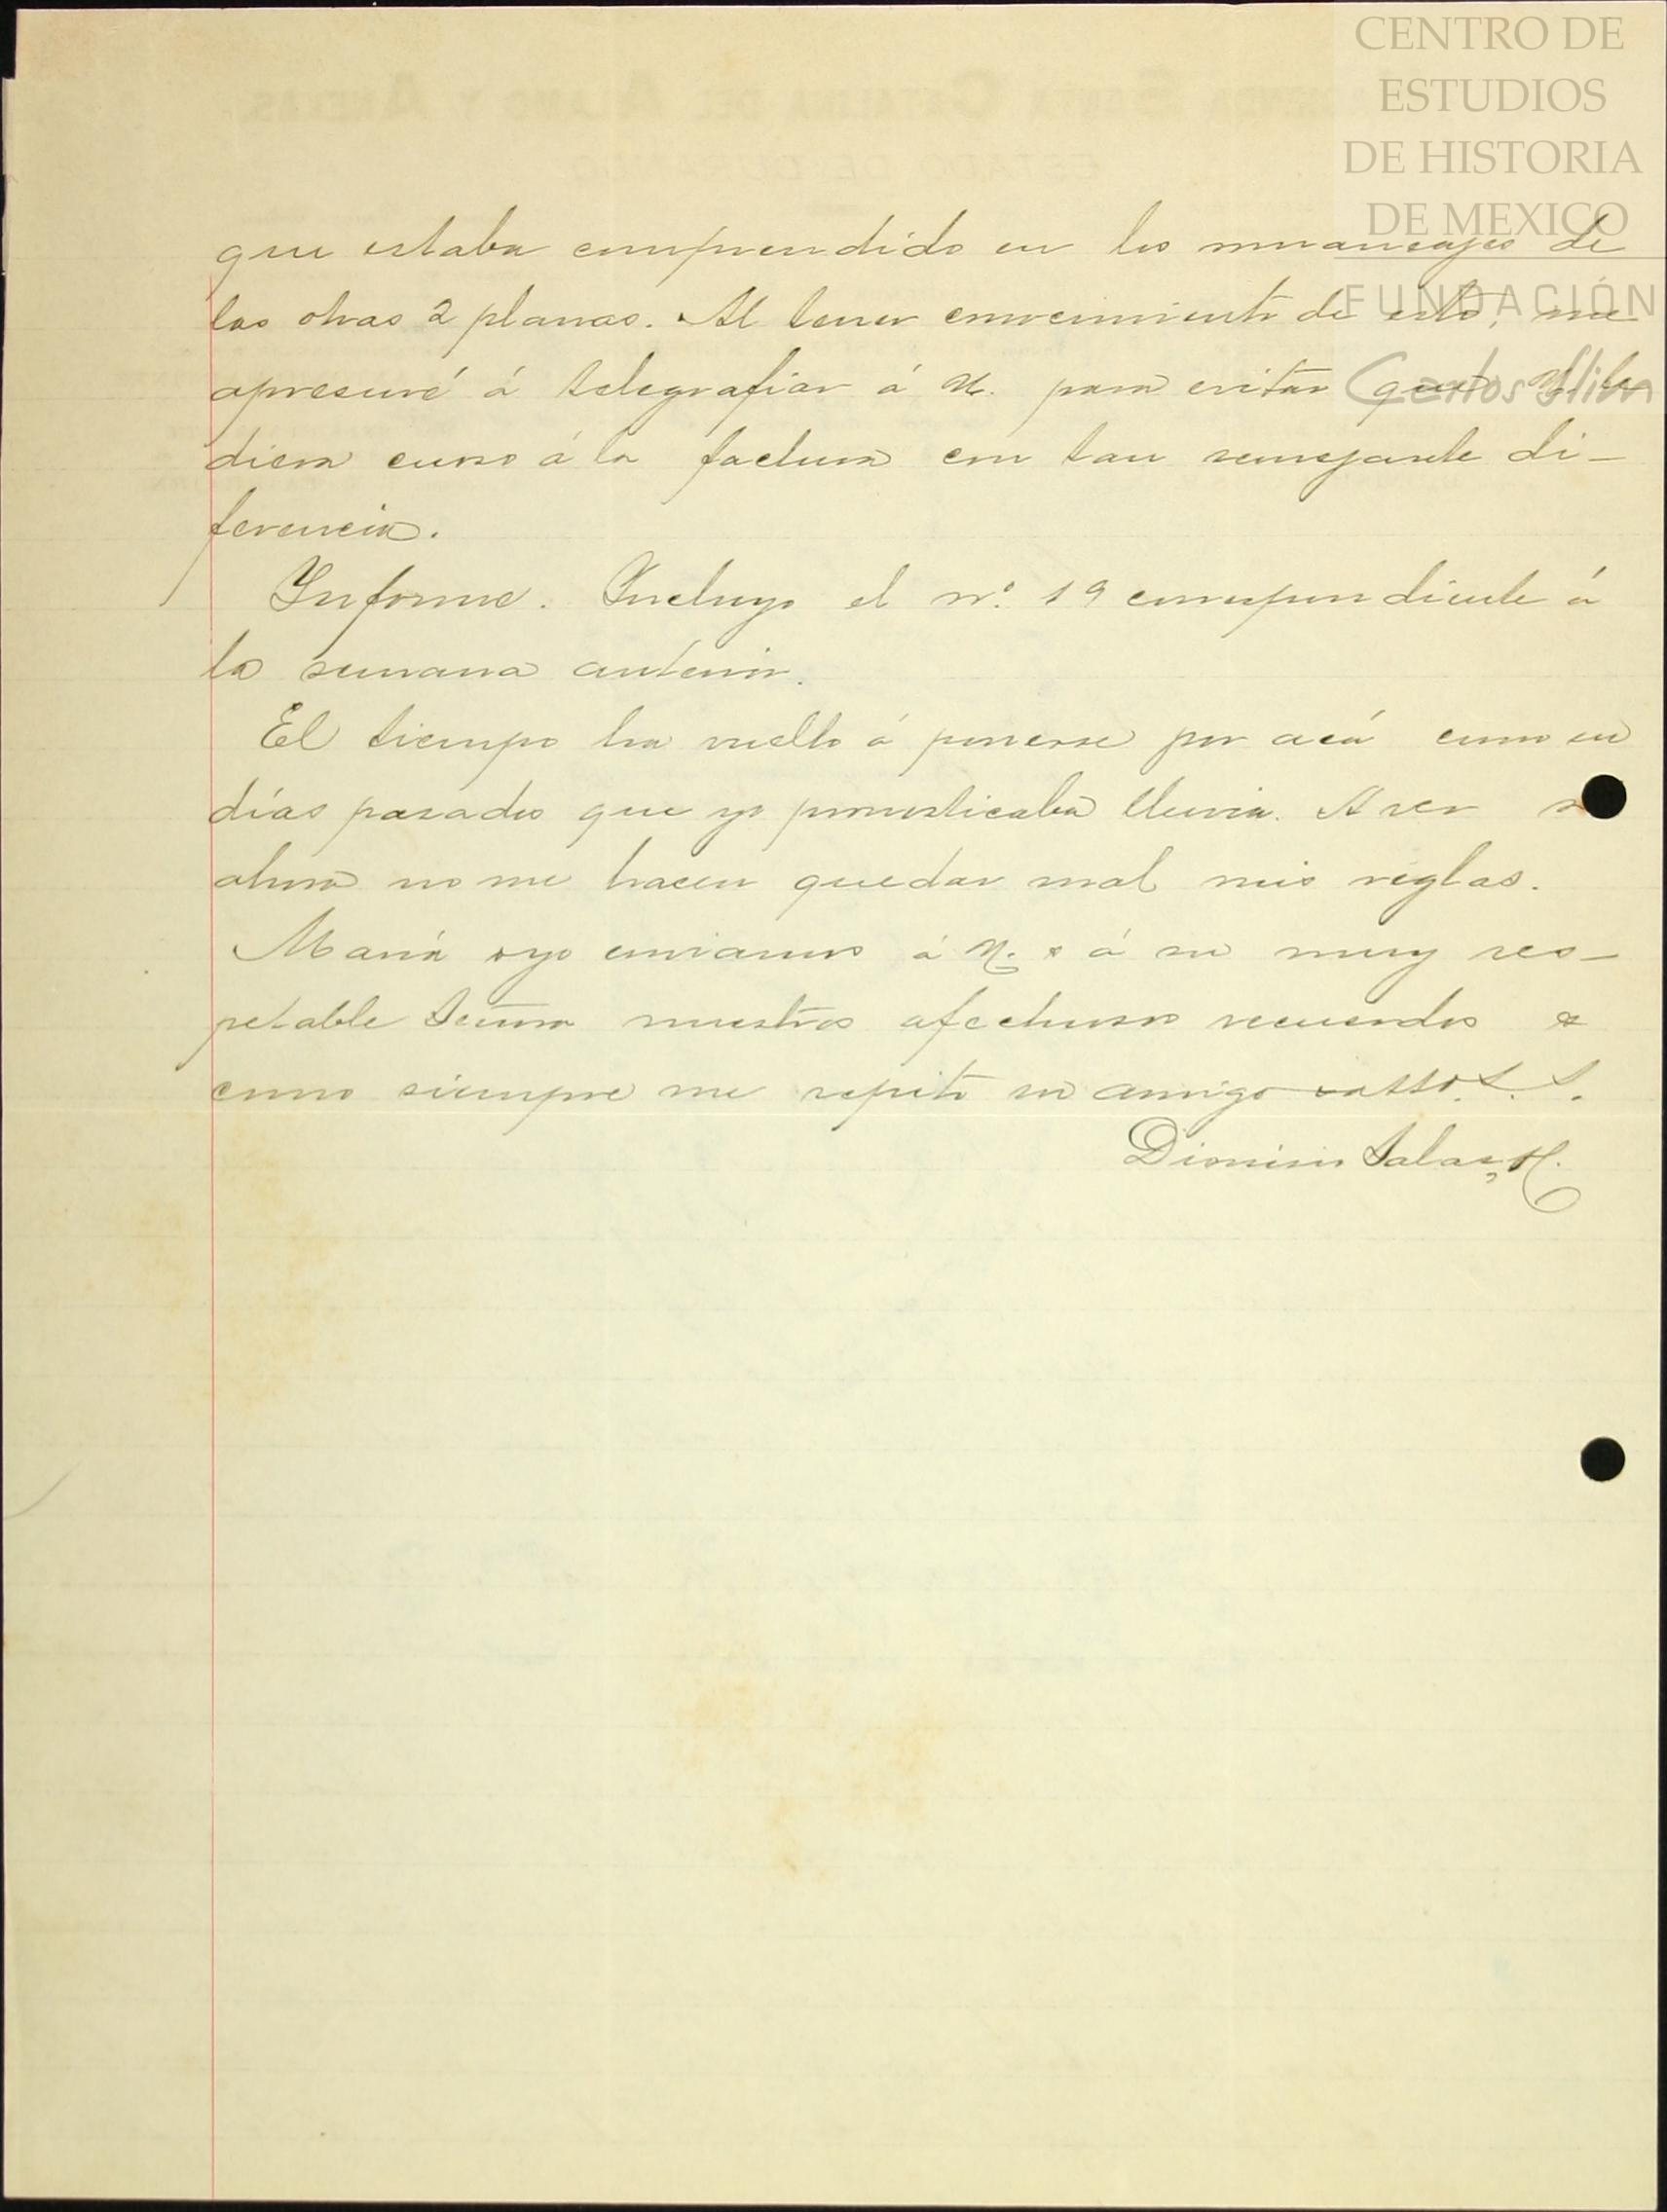 CENTRO DE
ESTUDIOS
DE HISTORIA
DE MEXICO
FUNDACIÓN
Carlos Slim
que estaba comprendido en los de
las otras 2 planas. Al tener conocimiento de esto, me
apresuré á telegrafiar á U. para evitar que U. le
diera curso á la factura con tan semejante di-
ferencia.
Informe. Incluyo el nº. 19 correspondiente á
la semana anterior.
El tiempo ha vuelto á ponerse por acá como en
días pasados que yo pronosticaba lluvia. A ver si
ahora no me hacen quedar mal mis reglas.
María y yo enviamos á U. y á su muy res-
petable Señora nuestros afectuosos recuerdos y
como siempre me repito su amigo atto. S. S.
Dionisio Salas H.